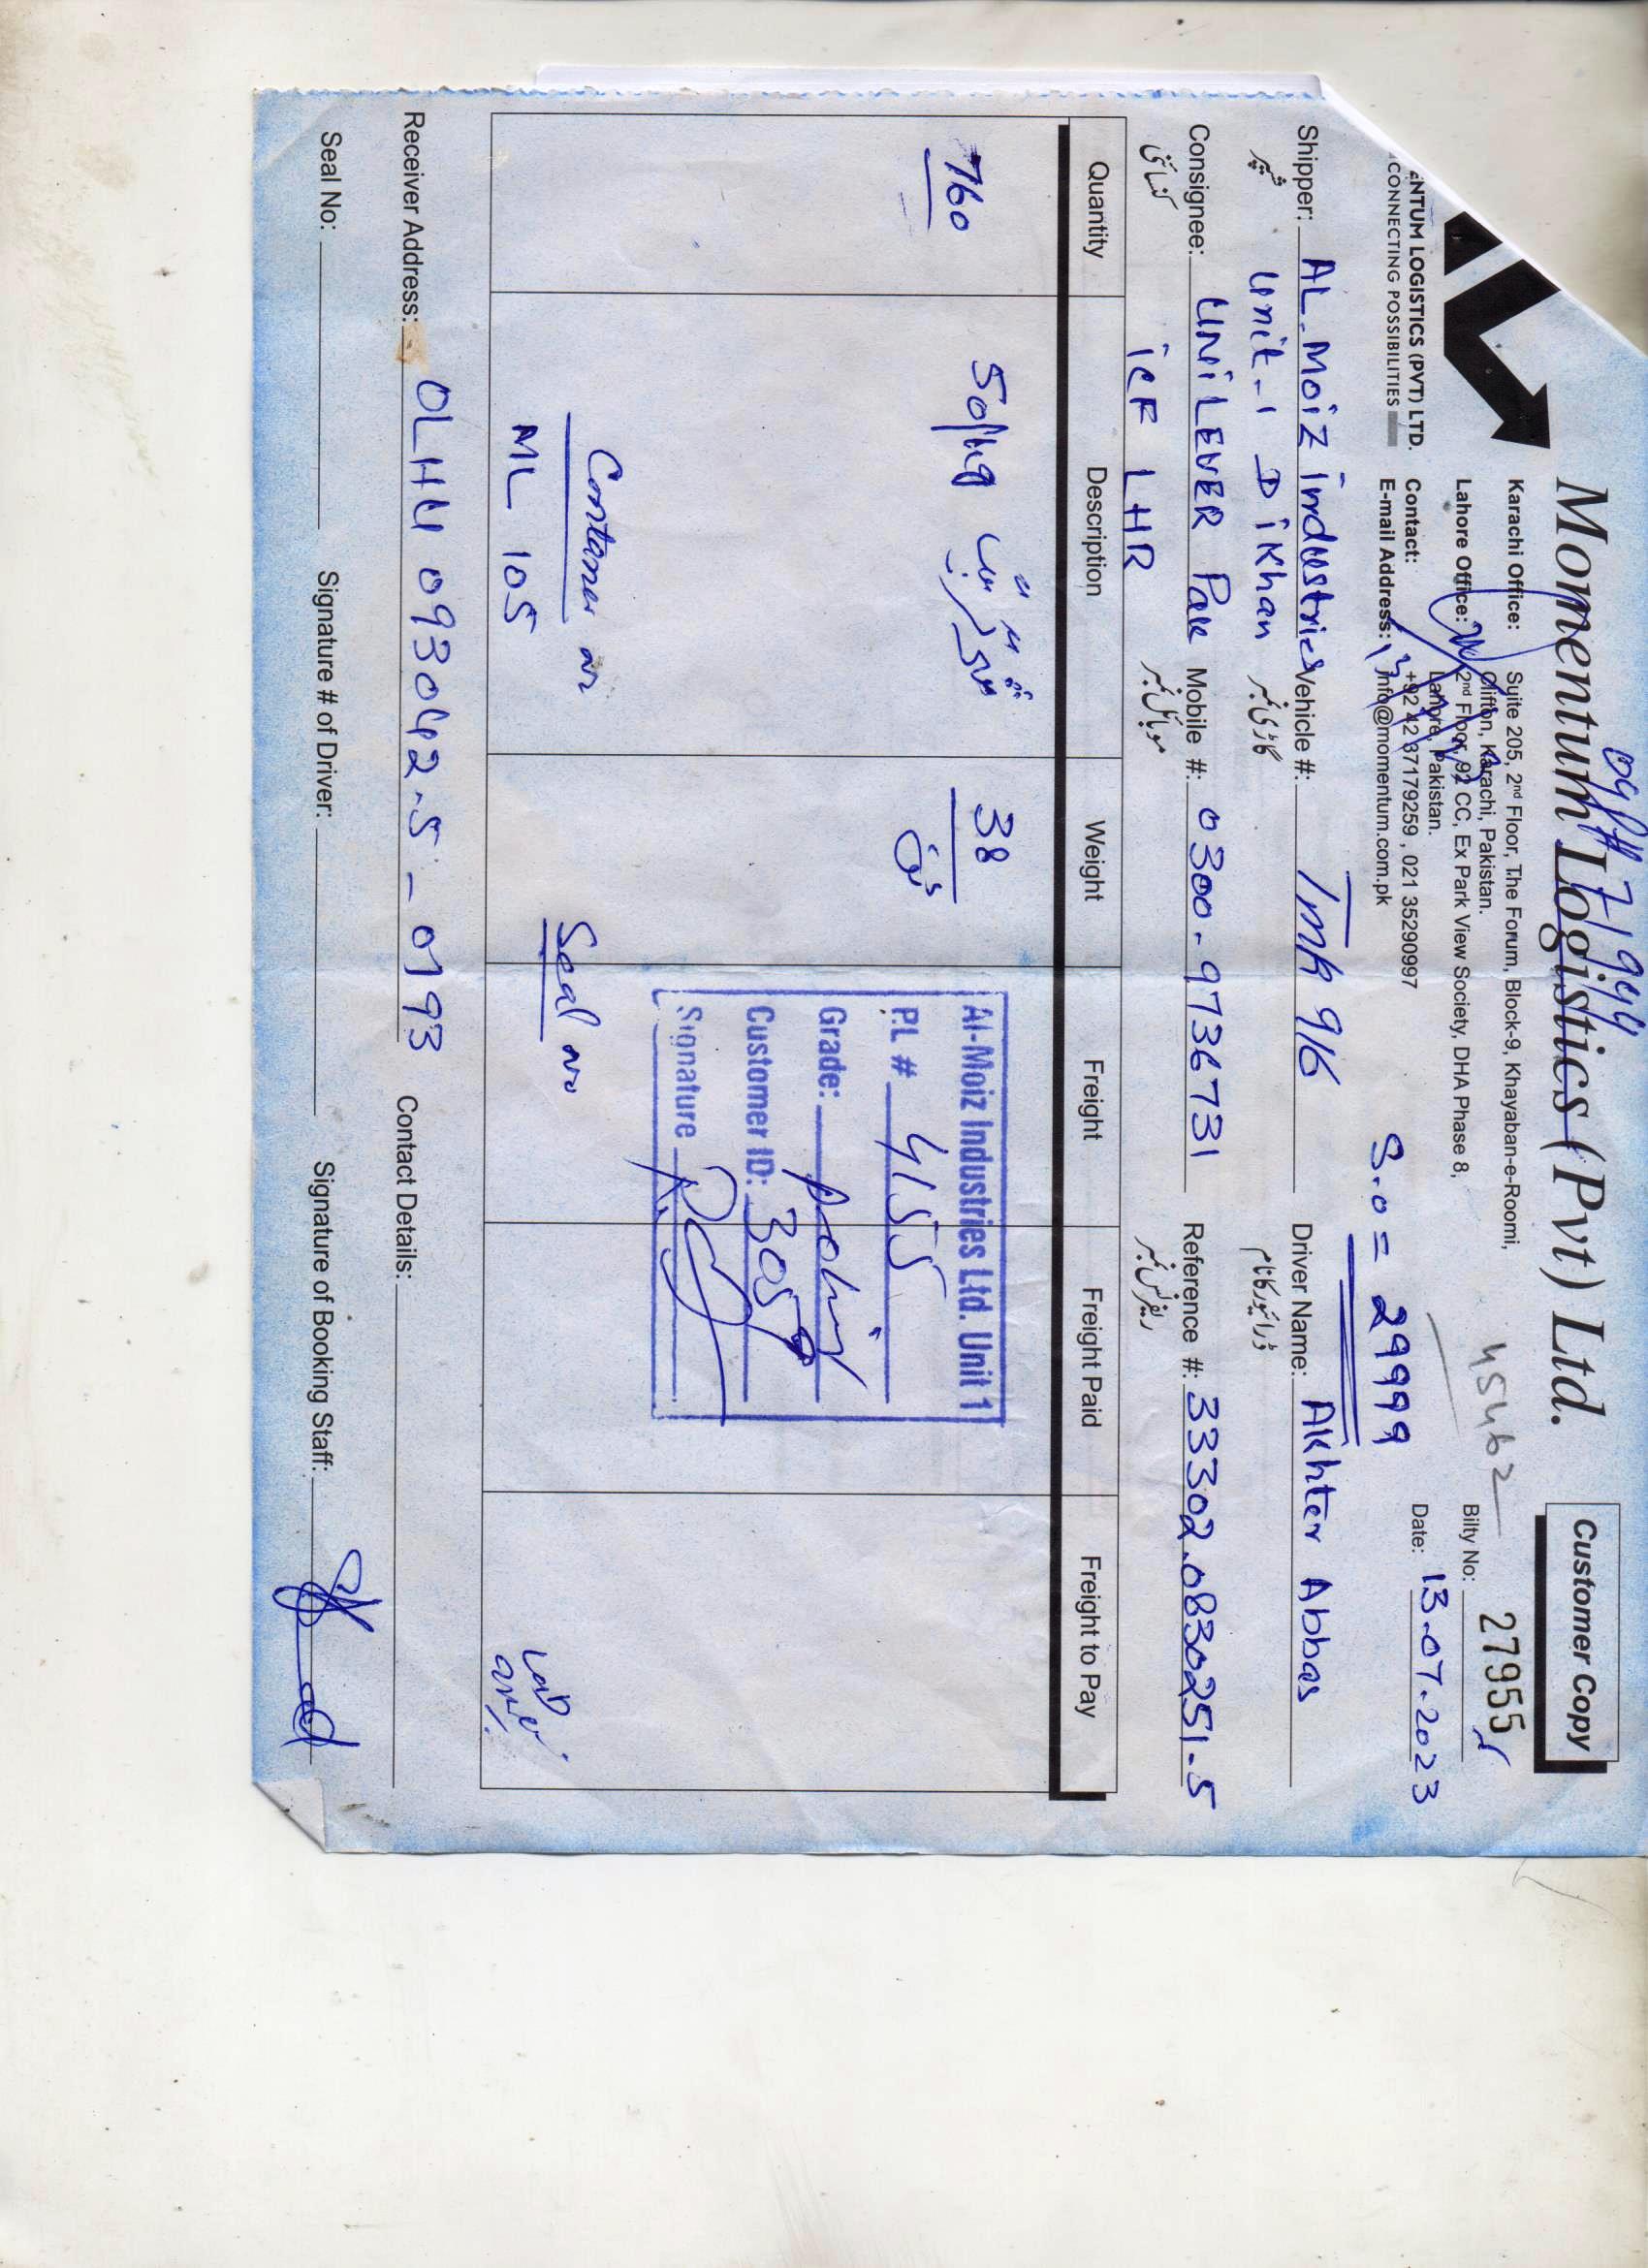 Momentum Logistics (Pvt) Ltd.
Customer Copy
ENTUM LOGISTICS (PVT) LTD.
CONNECTING POSSIBILITIES
Karachi Office: Suite 205, 2nd Floor, The Forum, Block-9, Khayaban-e-Roomi,
Clifton, Karachi, Pakistan.
Lahore Office: 2nd Floor, 92 CC, Ex Park View Society, DHA Phase 8,
Lahore, Pakistan.
Contact: +92 42 37179259 , 021 35290997
E-mail Address: info@momentum.com.pk
45462
Bilty No: 27955
Date: 13.07.2023
S.o = 29999
Shipper: AL.Moiz industries Vehicle #: TMK 916 Driver Name: AKhter Abbas
شیپر Unit-1 DiKhan گاڑی نمبر ڈرائیور کا نام
Consignee: UNiLEVER Pak Mobile #: 0300-9736731 Reference #: 33302.0830251-5
کنسائنی iCF LHR موبائل نمبر ریفرنس نمبر
Quantity Description Weight Freight Freight Paid Freight to Pay
760 50/kg 38 ٹن
Al-Moiz Industries Ltd. Unit 1
P.L # 4155
Grade:
Customer ID: 3057
Signature
Container no Seal no
ML 105
Receiver Address: OLHU 093042-5 - 0193 Contact Details:
Seal No: Signature # of Driver: Signature of Booking Staff: